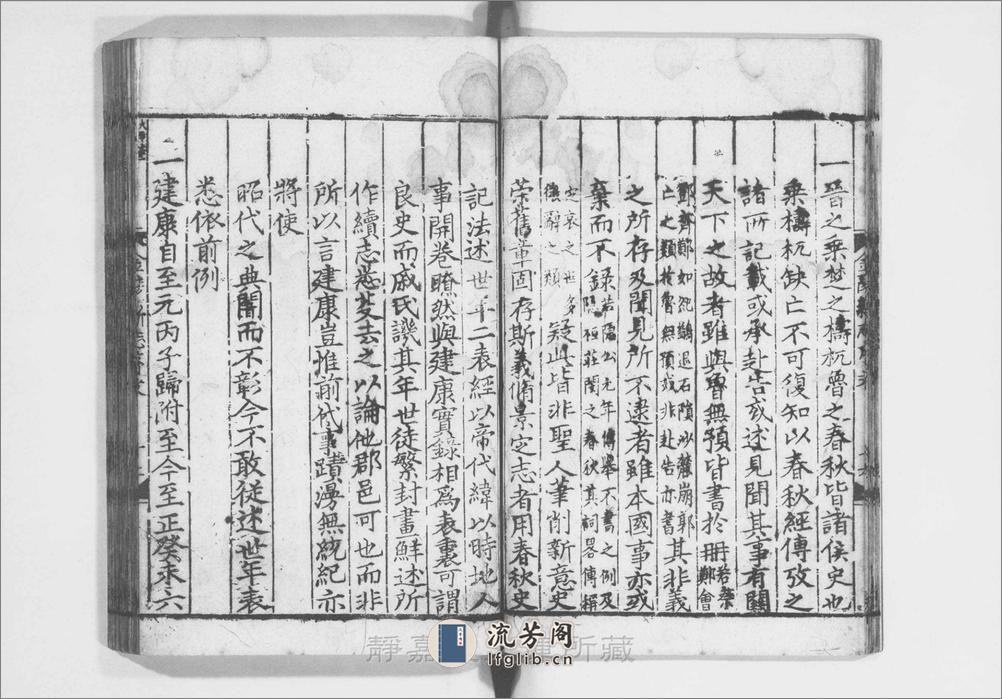 一晉之乘楚之檮杌魯之春秋皆諸侯史也
乘檮杌缺亡不可復知以春秋經傳攷之
諸所記載或承赴告或述見聞其事有關
天下之故者雖與魯無預皆書於冊若蔡鄭會
鄧齊鄭如紀鷁退石隕沙麓崩郭亡之類於魯無預或非赴告亦書其非義
之所存及聞見所不逮者雖本國事亦或
棄而不錄若隱公元年傳舉不書之例及隱桓莊閔之春秋其詞畧傳稱
定哀之世多微辭之類疑此皆非聖人筆削新意史
舊章固存斯義脩景定志者用春秋史
記法述世年二表經以帝代緯以時地人
事開卷瞭然與建康實錄相為表裏可謂
良史而戚氏譏其年世徒繁封畫鮮述所
作續志悉芟去之以論他郡邑可也而非
所以言建康豈惟前代事蹟漫無統紀亦
將使
昭代之典闇而不彰今不敢從述世年表
悉依前例
一建康自至元丙子歸附至今至正癸未六
流芳阁
lfglib.cn
靜嘉 所藏